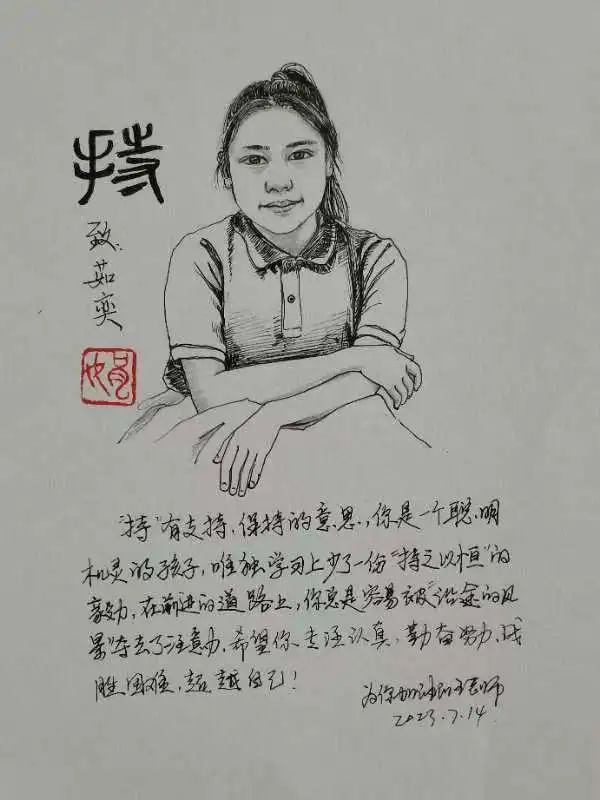 持
致茹奕
"持"有支持、保持的意思,你是一个聪明
机灵的孩子,唯独学习上少了一份"持之以恒"的
毅力,在前进的道路上,你总是容易被"沿途的风
景"夺去了注意力,希望你专注认真,勤奋努力,战
胜困难,超越自己!
为你加油的王老师
2023.7.14